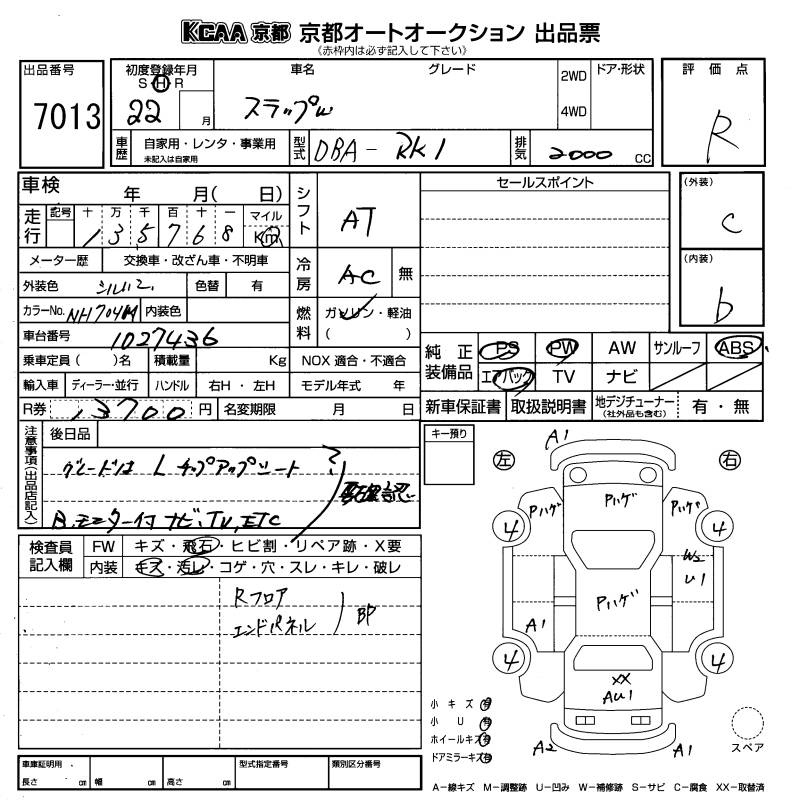 KCAA 京都 京都オートオークション 出品票
(赤枠内は必ず記入して下さい)
出品番号
7013
初度登録年月
S・H・R
22 月
車名
グレード
2WD
4WD
ドア・形状
評価点
R
車歴
自家用・レンタ・事業用
未記入は自家用
型式
DBA-RK1
排気
2000 cc
車検 年 月( 日)
走行
記号 十 万 千 百 十 一 マイル
135768 Km
メーター歴 交換車・改ざん車・不明車
外装色
色替 有
カラーNo. NH704M 内装色
車台番号 1027436
乗車定員 ( )名 積載量 Kg
輸入車 ディーラー・並行 ハンドル 右H・左H
R券 13700 円 名変期限 月 日
シフト AT
冷房 AC 無
燃料
ガソリン・軽油
( )
NOX 適合・不適合
モデル年式 年
セールスポイント
(外装)
C
(内装)
b
純正装備品
PS PW AW サンルーフ ABS
エアバック TV ナビ
新車保証書 取扱説明書 地デジチューナー (社外品も含む) 有・無
注意事項(出品店記入)
後日品
グレードは L チップアップシート ?
要確認
B.モニター付 ナビ、TV、ETC
キー預り
検査員記入欄
FW キズ・飛石・ヒビ割・リペア跡・X要
内装 キズ・汚レ・コゲ・穴・スレ・キレ・破レ
Rフロア
エンドパネル
BP
A1
左 右
Pハゲ Pハゲ Pハゲ
4 4
W2
U1
Pハゲ
A1
4 4
XX
AU1
A2 A1
小キズ 有
小U 有
ホイールキズ 有
ドアミラーキズ 有
スペア
車庫証明用
長さ cm 幅 cm 高さ cm
型式指定番号
類別区分番号
A-線キズ M-調整跡 U-凹み W-補修跡 S-サビ C-腐食 XX-取替済